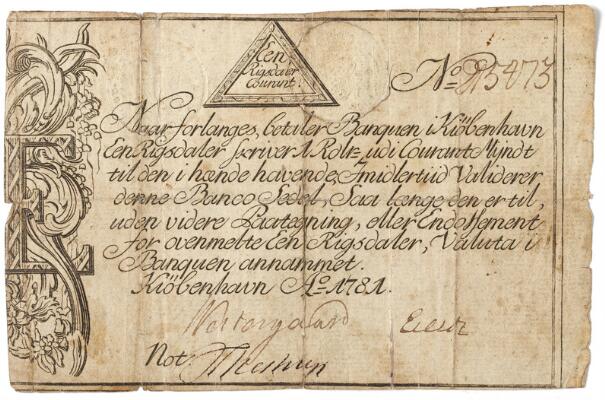 Een
Rigsdaler
Courant.
No. 95473
Naar forlanges, betaler Banquen i Kiöbenhavn
Een Rigsdaler skriver 1 Rdlr. udi Courant Myndt
til den i hænde havende, Imidlertiid Validerer
denne Banco Sedel, Saa længe den er til,
uden videre Paategning, eller Endossement
for ovenmelte Een Rigsdaler, Valuta i
Banquen annammet.
Kiöbenhavn Ao. 1781.
Not: